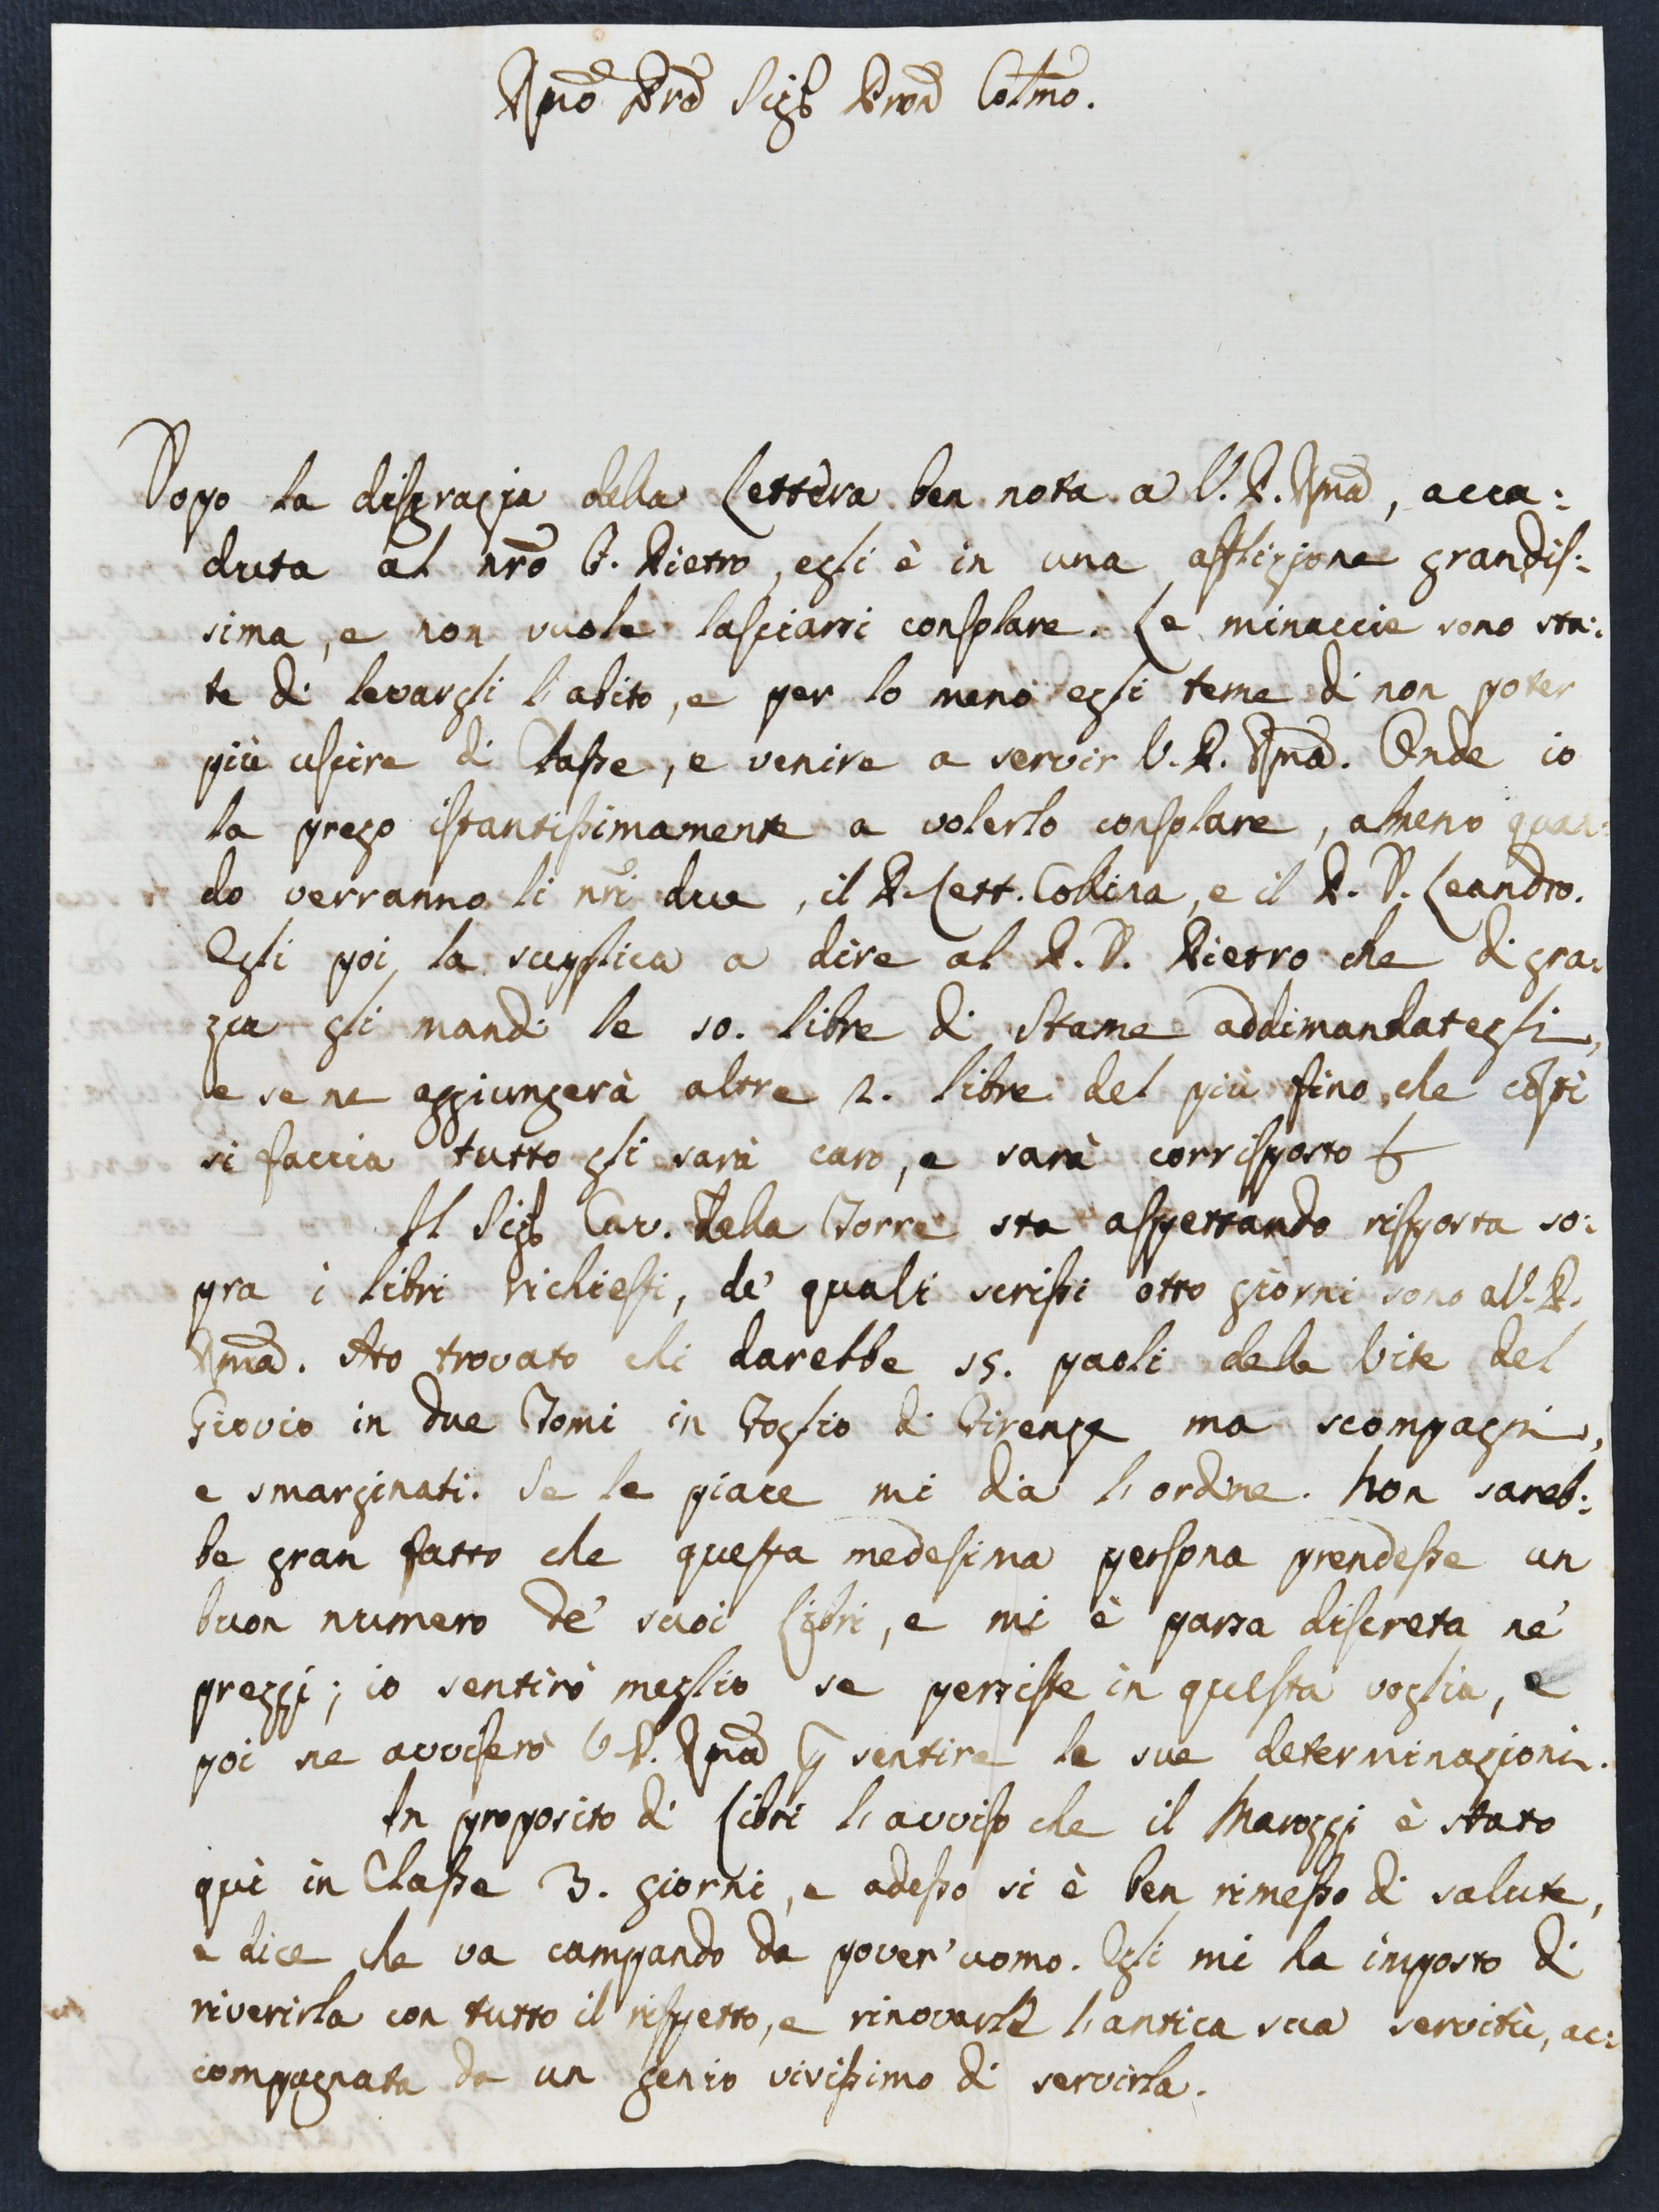 Rmo Pre Sigr Pron Colmo.
Dopo la disgrazia della Lettera ben nota a V. P. Rma, acca:
duta al nro F. Pietro, egli è in una afflizione grandis:
sima, e non vuole lasciarsi consolare. Le minaccie sono sta:
te di levargli l'abito, e per lo meno egli teme di non poter
più uscire di Classe, e venire a servir V. P. Rma. Onde io
la prego istantissimamente a volerlo consolare, almeno quan:
do verranno li nri due, il P. Lett. Collina, e il P. D. Leandro.
Egli poi la supplica a dire al P. D. Pietro che di gra:
zia gli mandi le 10. libre di Stame addimandategli,
e se ne aggiungerà altre 2. libre del più fino, che costì
si faccia tutto gli sarà caro, e sarà corrisposto
Il Sigr Cav. Della Torre sta aspettando risposta so:
pra i libri richiesti, de' quali scrissi otto giorni sono a V. P.
Rma. Ho trovato chi darebbe 15. paoli delle Vite del
Giovio in due Tomi in Foglio di Firenze ma scompagni,
e smarginati. Se le piace mi dia l'ordine. Non sareb:
be gran fatto che questa medesima persona prendesse un
buon numero de' suoi Libri, e mi è parsa discreta ne'
prezzi; io sentirò meglio se persiste in questa voglia, e
poi ne avviserò V. P. Rma p sentire le sue determinazioni.
In proposito di Libri l'avviso che il Marozzi è stato
quì in Classe 3. giorni, e adesso si è ben rimesso di salute,
e dice che va campando da pover'uomo. Egli mi ha imposto di
riverirla con tutto il rispetto, e rinovarle l'antica sua servitù, ac:
compagnata da un genio vivissimo di servirla.